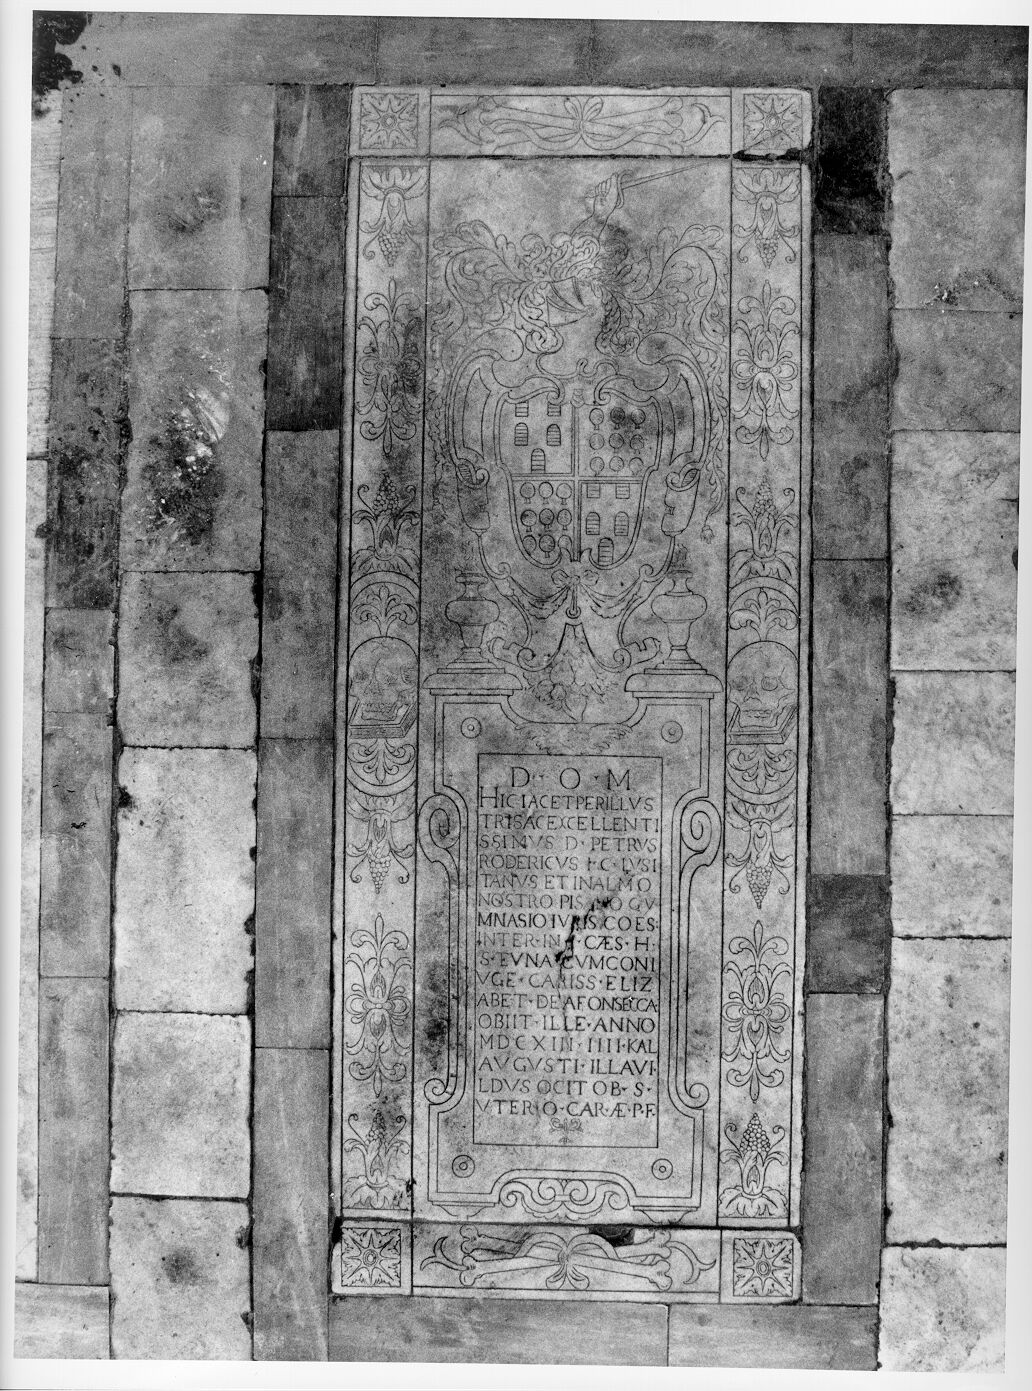 D·O·M
HIC IACET PERILLVS
TRIS AC EXCELLENTI
SSIMVS D·PETRVS
RODERICVS LVSI
TANVS ET IN ALMO
NOSTRO PIS GV
MNASIO IVRIS COES·
INTER· CÆS·H·
S·E VNA CVM CONI
VGE·CARISS·ELIZ
ABET·DE AFONSECCA
OBIIT·ILLE·ANNO
MDCXIII·IIII·KAL
AVGVSTI·ILLA VI·
LDVS OCTOB·S·
VTERQ·CARÆ·P·F·